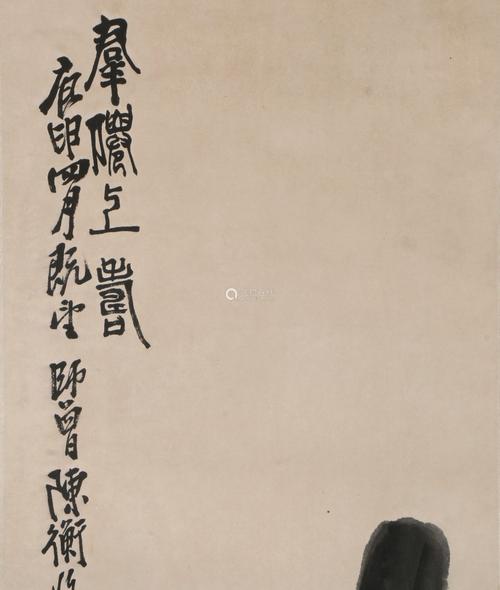 羣僊上壽
庚申四月既望 師曾陳衡